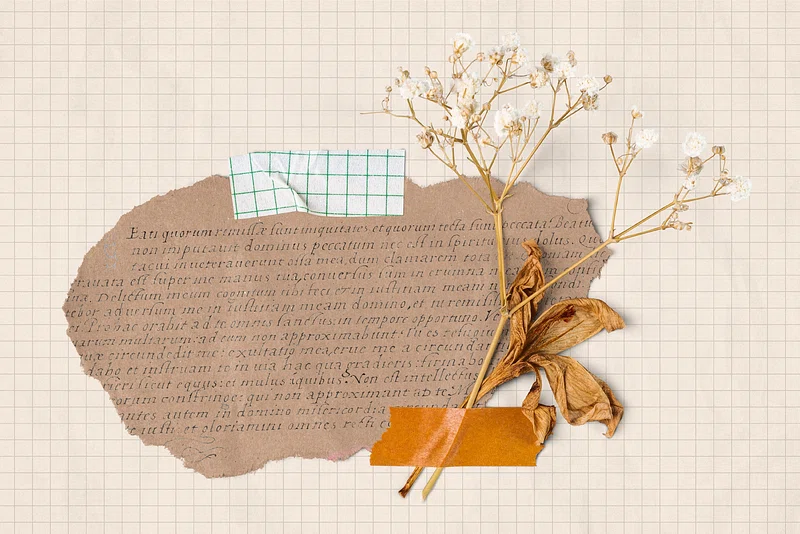 Eati quorum remissæ sunt iniquitates et quorum tecta sunt peccata. beatu
non imputauit dominus peccatum nec est in spiritu dolus. Qu
tacui inueterauerunt ossa mea, dum clamarem tota
est super me manus tua, conuersus sum in erumna
na. Delictum meum cognitum tibi feci et iniustitiam meam
ebor aduersum me iniustitiam meam domino, et tu remisi
pro hac orabit ad te omnis sanctus, in tempore opportuno. Ve
arum multarum, ad eum non approximabunt. Tu es refugiu
uæ circundedit me: exultatio mea, erue me a circundan
labo et instruam in uia hac qua gradieris: firmabo
fieri sicut equus: et mulus quibus. Non est intellectus
orum constringe: qui non approximant ad te
antes autem in domino misericordia
te iusti et gloriamini omnes recti c